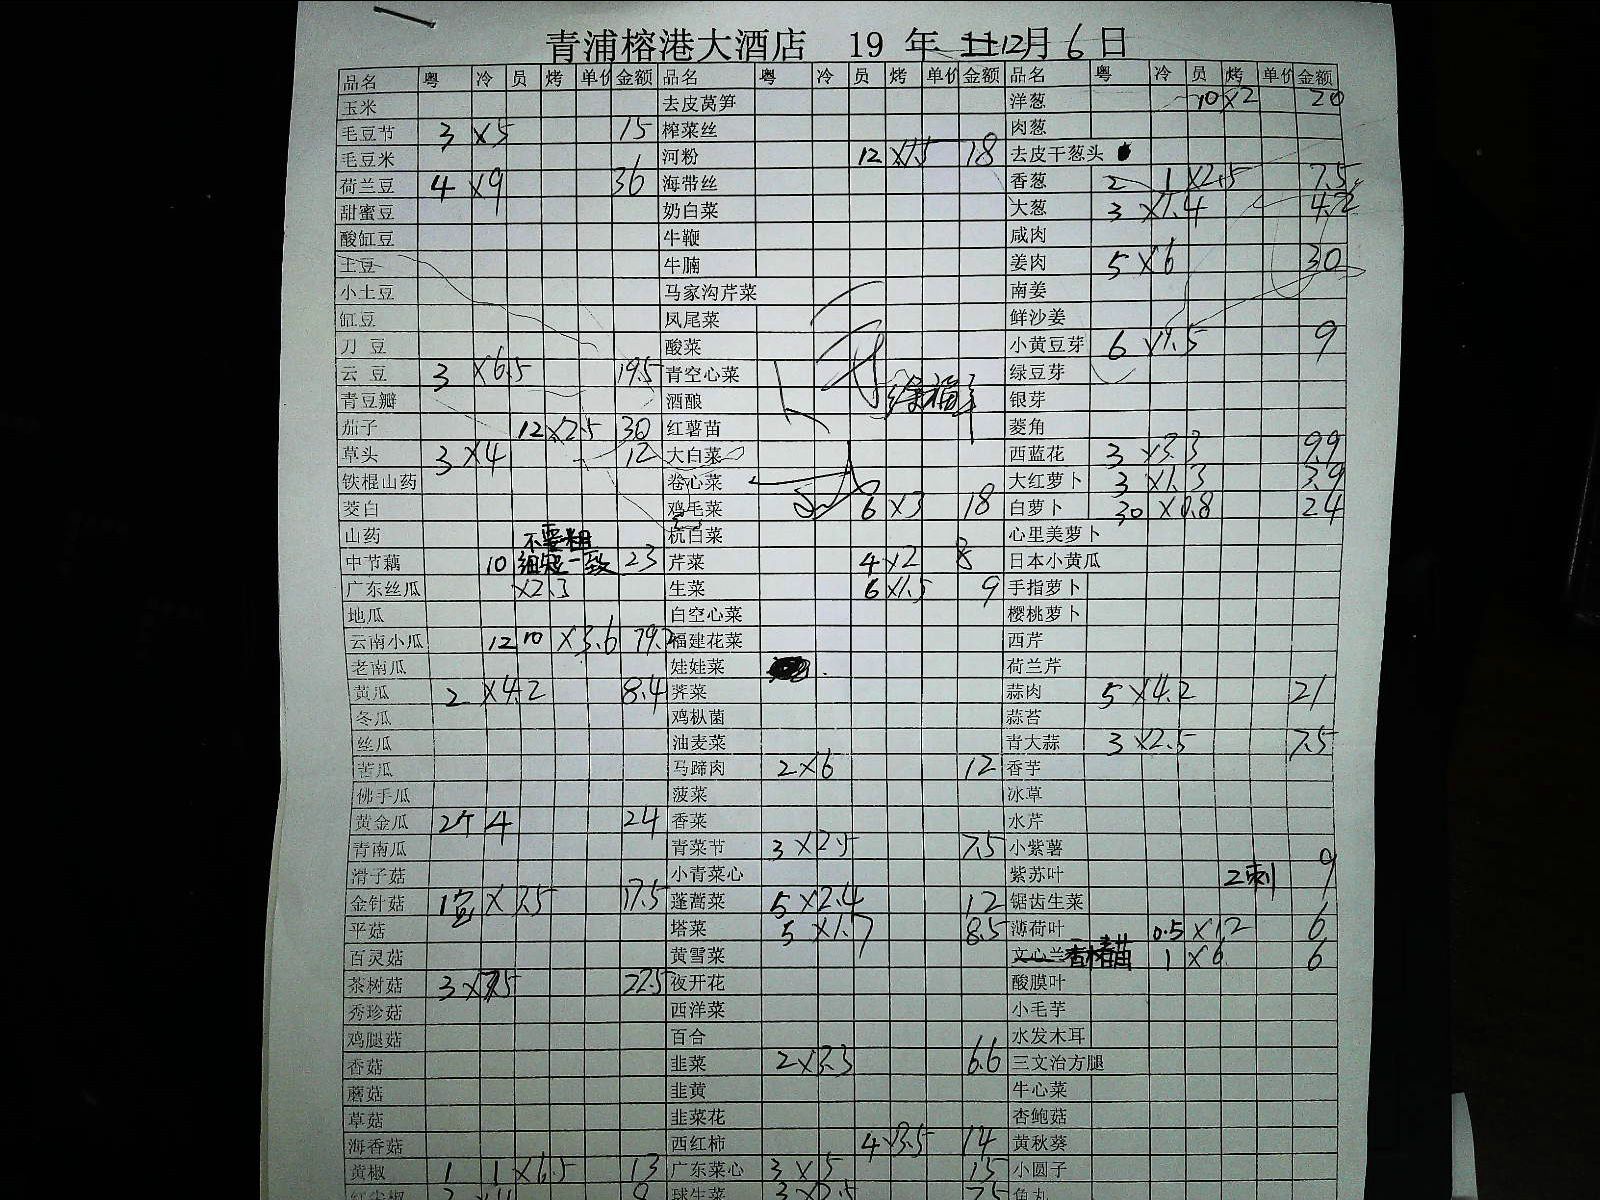 青浦榕港大酒店 19 年 12月 6 日
品名 粤 冷 员 烤 单价 金额 品名 粤 冷 员 烤 单价 金额 品名 粤 冷 员 烤 单价 金额
玉米 去皮莴笋 洋葱 10 x2 20
毛豆节 3 x5 15 榨菜丝 肉葱
毛豆米 河粉 12 x1.5 18 去皮干葱头
荷兰豆 4 x9 36 海带丝 香葱 2 1 x2.5 7.5
甜蜜豆 奶白菜 大葱 3 x1.4 4.2
酸缸豆 牛鞭 咸肉
土豆 牛腩 姜肉 5 x6 30
小土豆 马家沟芹菜 南姜
缸豆 凤尾菜 鲜沙姜
刀 豆 酸菜 小黄豆芽 6 x1.5 9
云 豆 3 x6.5 19.5 青空心菜 绿豆芽
青豆瓣 酒酿 银芽
茄子 12 x2.5 30 红薯苗 菱角
草头 3 x4 12 大白菜 西蓝花 3 x3.3 9.9
铁棍山药 卷心菜 大红萝卜 3 x1.3 3.9
茭白 鸡毛菜 6 x3 18 白萝卜 30 x0.8 24
山药 不要粗 杭白菜 心里美萝卜
中节藕 10 一致 23 芹菜 4 x2 8 日本小黄瓜
广东丝瓜 x2.3 生菜 6 x1.5 9 手指萝卜
地瓜 白空心菜 樱桃萝卜
云南小瓜 12 10 x3.6 79.2 福建花菜 西芹
老南瓜 娃娃菜 荷兰芹
黄瓜 2 x4.2 8.4 荠菜 蒜肉 5 x4.2 21
冬瓜 鸡枞菌 蒜苔
丝瓜 油麦菜 青大蒜 3 x2.5 7.5
苦瓜 马蹄肉 2 x6 12 香芋
佛手瓜 菠菜 冰草
黄金瓜 2个 4 24 香菜 水芹
青南瓜 青菜节 3 x2.5 7.5 小紫薯
滑子菇 小青菜心 紫苏叶 2刺 9
金针菇 1 17.5 蓬蒿菜 5 x2.4 12 锯齿生菜
平菇 塔菜 5 x1.7 8.5 薄荷叶 0.5 x12 6
百灵菇 黄雪菜 文心兰 1 x6 6
茶树菇 3 x7.5 22.5 夜开花 酸膜叶
秀珍菇 西洋菜 小毛芋
鸡腿菇 百合 水发木耳
香菇 韭菜 2 x3.3 6.6 三文治方腿
蘑菇 韭黄 牛心菜
草菇 韭菜花 杏鲍菇
海香菇 西红柿 4 x3.5 14 黄秋葵
黄椒 1 1 x6.5 13 广东菜心 3 x5 15 小圆子
红尖椒 2 球生菜 3 x2.5 7.5 鱼丸